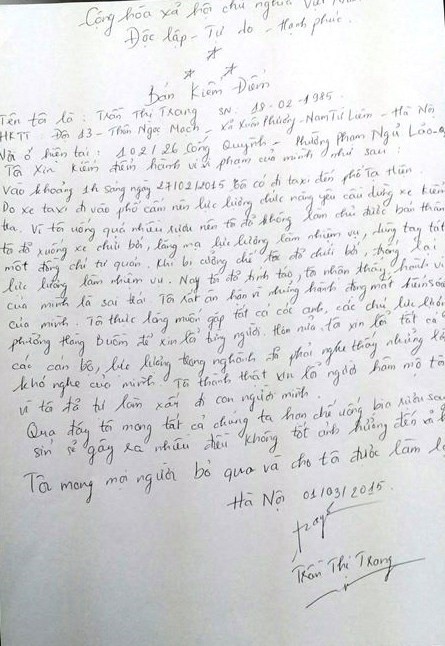 Cộng hòa xã hội chủ nghĩa Việt Nam
Độc lập - Tự do - Hạnh phúc.
Bản Kiểm Điểm
Tên tôi là: Trần Thị Trang SN: 18-02-1985.
HKTT Đội 13 - Thôn Ngọc Mạch - Xã Xuân Phương - Nam Từ Liêm - Hà Nội
Nơi ở hiện tại: 102/26 Cống Quỳnh - Phường Phạm Ngũ Lão - Q
Tôi Xin kiểm điểm hành vi vi phạm của mình như sau:
Vào khoảng 1h sáng ngày 27/02/2015 tôi có đi taxi đến phố Tạ Hiện.
Do xe taxi đi vào phố cấm nên lực lượng chức năng yêu cầu dừng xe kiểm
tra. Vì tôi uống quá nhiều rượu nên tôi đã không làm chủ được bản thân
tôi đã xuống xe chửi bới, lăng mạ lực lượng làm nhiệm vụ, dùng tay tát
một đồng chí tự quản. Khi bị cưỡng chế tôi đã chửi bới, chống lại
lực lượng làm nhiệm vụ. Nay tôi đã tỉnh táo, tôi nhận thấy hành vi
của mình là sai trái. Tôi rất ân hận vì những hành động mất kiểm soát
của mình. Tôi thực lòng muốn gặp tất cả các anh, các chú lực lượng
phường Hàng Buồm để xin lỗi từng người. Hơn nữa, tôi xin lỗi tất cả
các cán bộ, lực lượng trong nghành đã phải nghe thấy những lời
khó nghe của mình. Tôi thành thật xin lỗi người hâm mộ tôi
vì tôi đã tự làm xấu đi con người mình.
Qua đây tôi mong tất cả chúng ta hạn chế uống bia rượu say
sỉn sẽ gây ra nhiều điều không tốt ảnh hưởng đến xã
Tôi mong mọi người bỏ qua và cho tôi được làm lại
Hà Nội 01/03/2015.
Trang
Trần Thị Trang